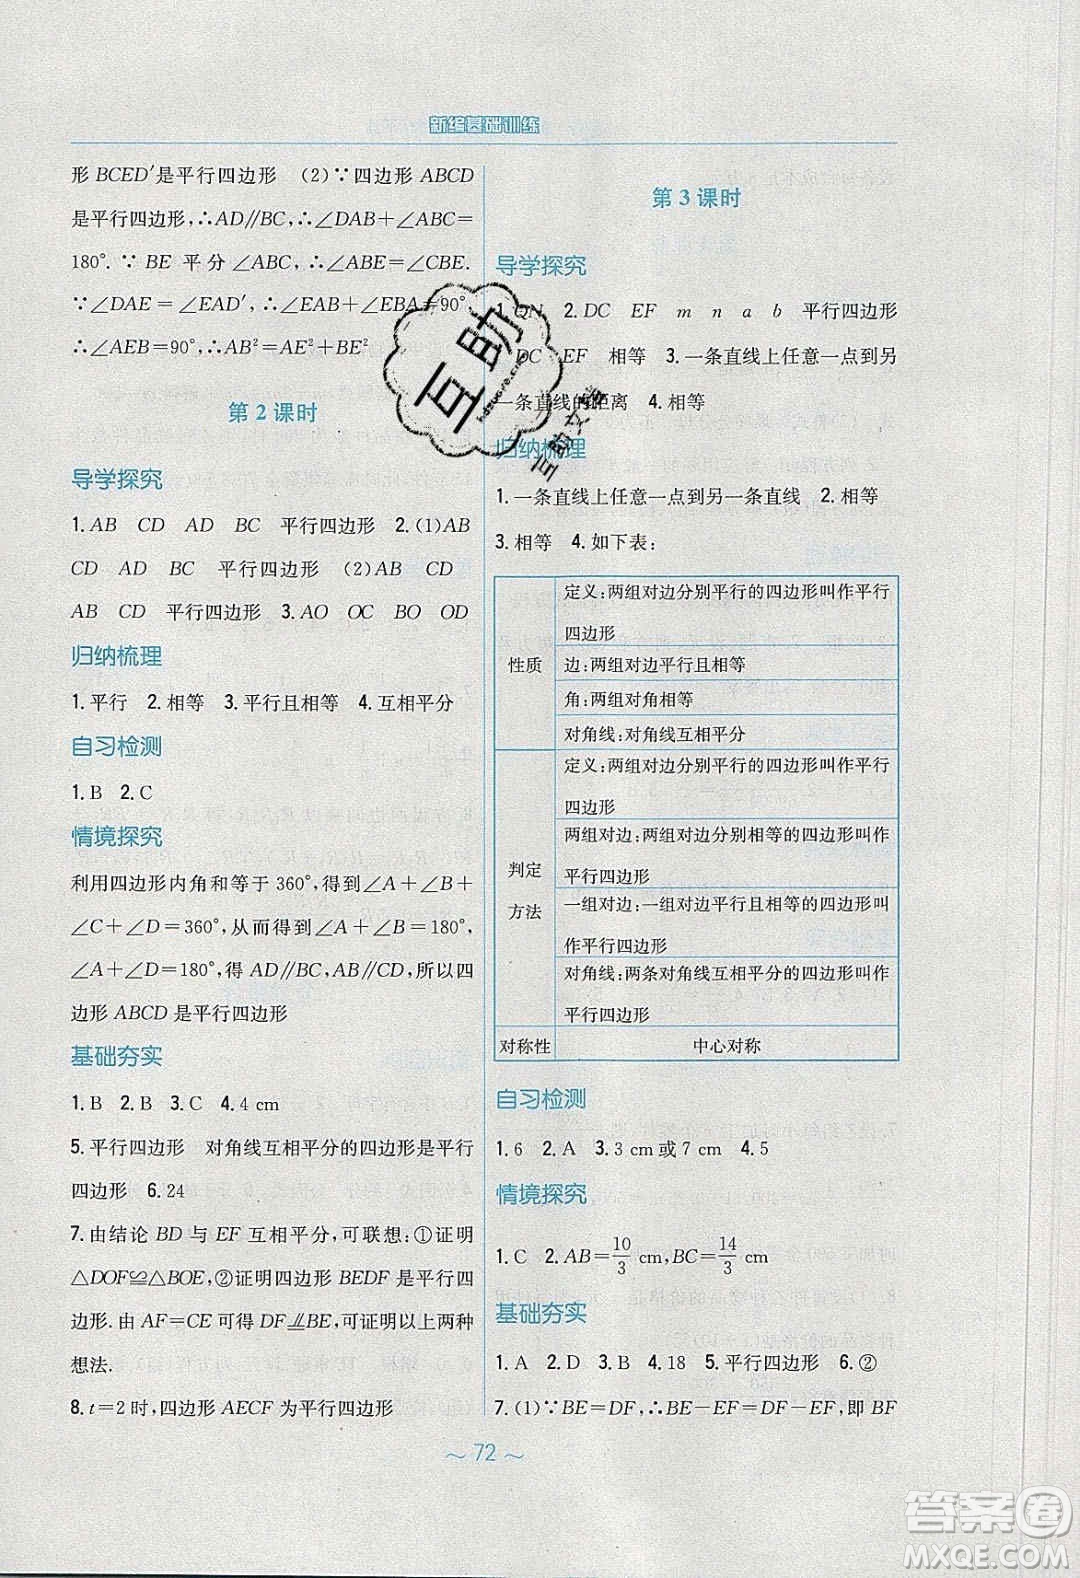 新编基础训练
形 BCED′是平行四边形　(2)∵四边形 ABCD
是平行四边形,∴AD∥BC,∴∠DAB+∠ABC=
180°. ∵ BE 平分∠ABC, ∴∠ABE=∠CBE.
∵∠DAE=∠EAD′,∴∠EAB+∠EBA=90°,
∴∠AEB=90°,∴AB²=AE²+BE²
第 2 课时
导学探究
1. AB　CD　AD　BC　平行四边形　2. (1)AB
CD　AD　BC　平行四边形　(2)AB　CD
AB　CD　平行四边形　3. AO　OC　BO　OD
归纳梳理
1. 平行　2. 相等　3. 平行且相等　4. 互相平分
自习检测
1. B　2. C
情境探究
利用四边形内角和等于 360°,得到∠A+∠B+
∠C+∠D=360°,从而得到∠A+∠B=180°,
∠A+∠D=180°,得 AD∥BC,AB∥CD,所以四
边形 ABCD 是平行四边形
基础夯实
1. B　2. B　3. C　4. 4 cm
5. 平行四边形　对角线互相平分的四边形是平行
四边形　6. 24
7. 由结论 BD 与 EF 互相平分,可联想:①证明
△DOF≌△BOE,②证明四边形 BEDF 是平行四
边形. 由 AF=CE 可得 DF⫽BE,可证明上述两种
想法.
8. t=2 时,四边形 AECF 为平行四边形
第 3 课时
导学探究
1. QN　2. DC　EF　m　n　a　b　平行四边形
DC　EF　相等　3. 一条直线上任意一点到另
一条直线的距离　4. 相等
归纳梳理
1. 一条直线上任意一点到另一条直线　2. 相等
3. 相等　4. 如下表:
性质
定义:两组对边分别平行的四边形叫作平行
四边形
边:两组对边平行且相等
角:两组对角相等
对角线:对角线互相平分
判定
方法
定义:两组对边分别平行的四边形叫作平行
四边形
两组对边:两组对边分别相等的四边形叫作
平行四边形
一组对边:一组对边平行且相等的四边形叫
作平行四边形
对角线:两条对角线互相平分的四边形叫作
平行四边形
对称性　中心对称
自习检测
1. 6　2. A　3. 3 cm 或 7 cm　4. 5
情境探究
1. C　2. AB=10/3 cm,BC=14/3 cm
基础夯实
1. A　2. D　3. B　4. 18　5. 平行四边形　6. ②
7. (1)∵BE=DF,∴BE−EF=DF−EF,即 BF
～ 72 ～
互助
互助文库
答案圈
MXQE.COM